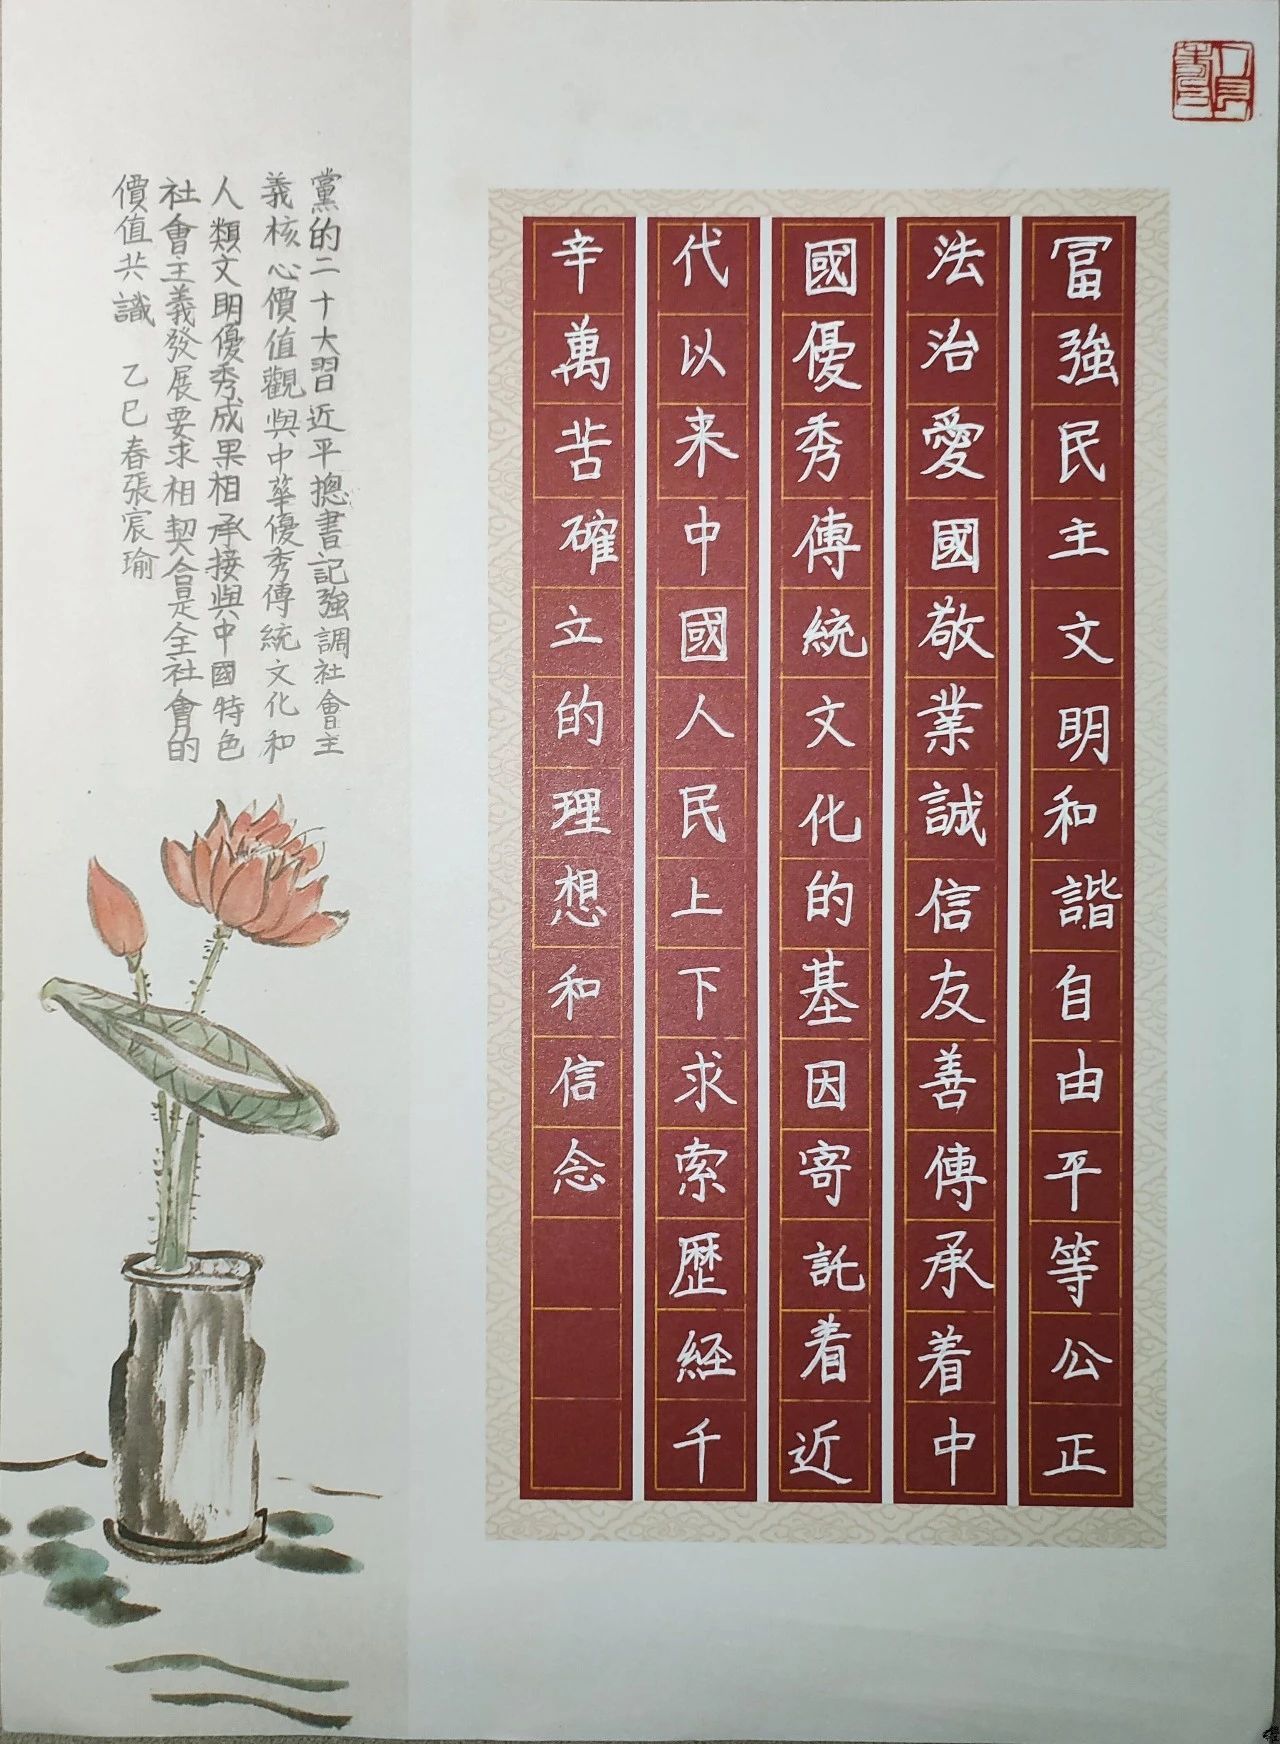 富強民主文明和諧自由平等公正
法治愛國敬業誠信友善傳承着中
國優秀傳統文化的基因寄託着近
代以来中國人民上下求索歷經千
辛萬苦確立的理想和信念
黨的二十大習近平摠書記強調社會主
義核心價值觀與中華優秀傳統文化和
人類文明優秀成果相承接與中國特色
社會主義發展要求相契合是全社會的
價值共識 乙巳春張宸瑜